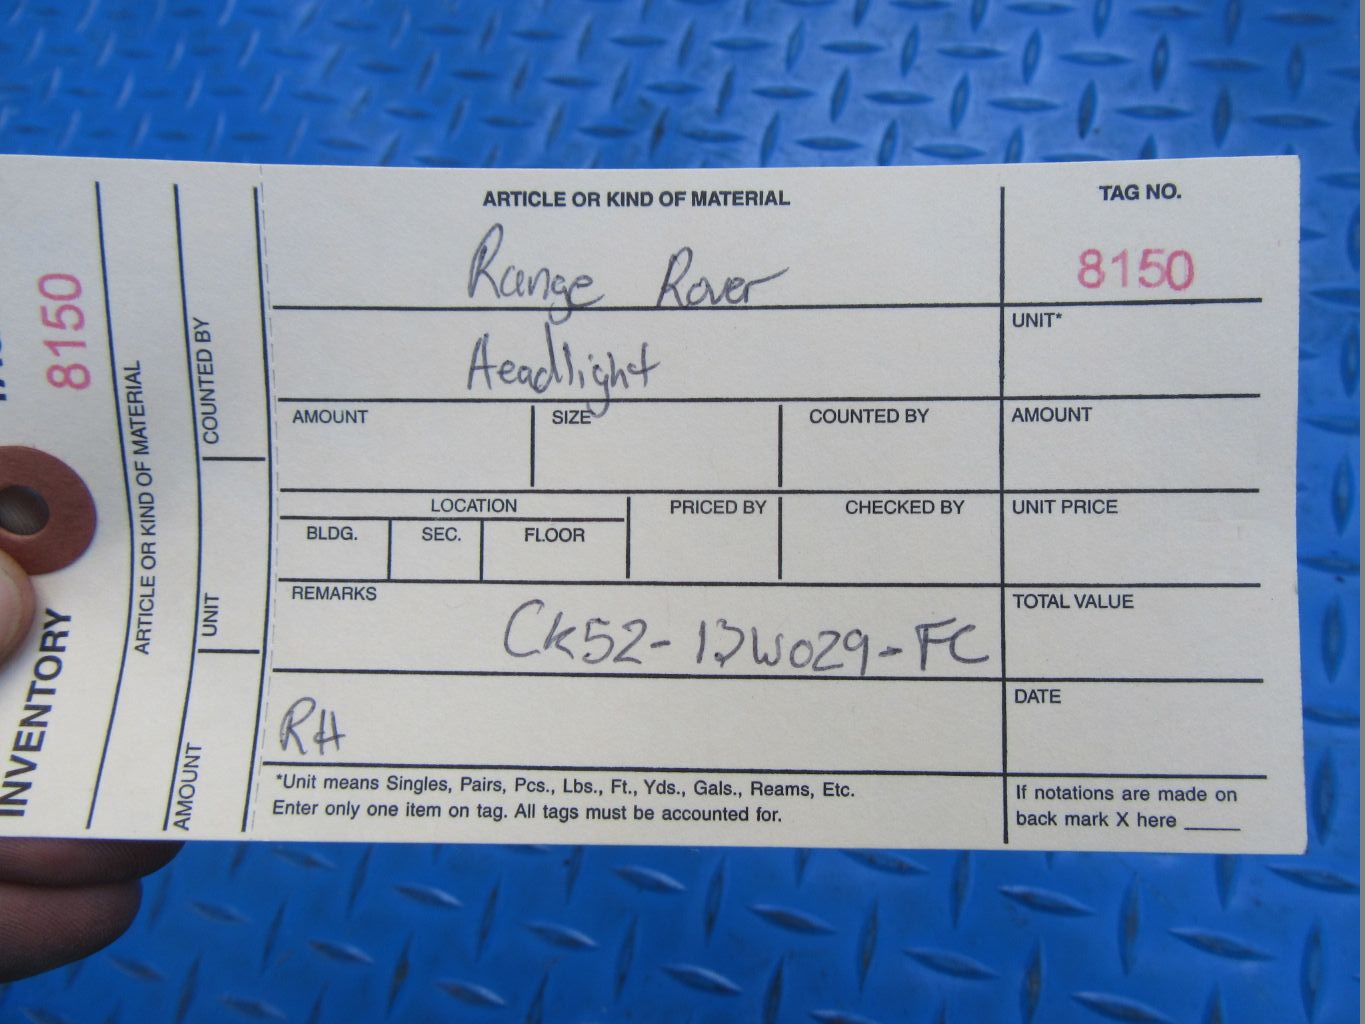 8150
INVENTORY
ARTICLE OR KIND OF MATERIAL
COUNTED BY
UNIT
AMOUNT
ARTICLE OR KIND OF MATERIAL
TAG NO.
Range Rover
8150
Headlight
UNIT*
AMOUNT
SIZE
COUNTED BY
AMOUNT
LOCATION
PRICED BY
CHECKED BY
UNIT PRICE
BLDG.
SEC.
FLOOR
REMARKS
TOTAL VALUE
CK52-13W029-FC
DATE
RH
*Unit means Singles, Pairs, Pcs., Lbs., Ft., Yds., Gals., Reams, Etc.
Enter only one item on tag. All tags must be accounted for.
If notations are made on
back mark X here _____